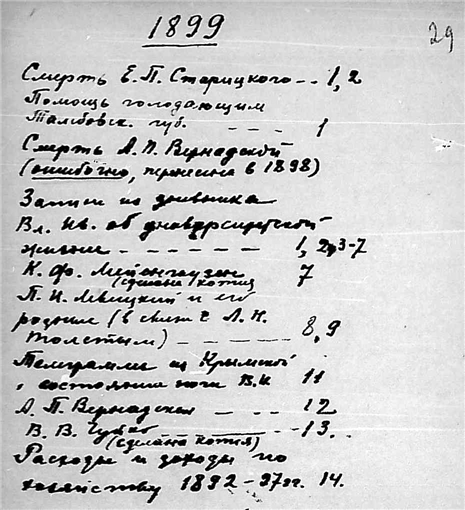 1899
29
Смерть Е. П. Старицкого - - 1, 2
Помощь голодающим
Тамбовск. губ. - - - - 1
Смерть А. П. Вернадской
(ошибочно, перенесена в 1898)
Записи из дневника
Вл. Ив. об университетской
жизни - - - - - - 1, 2, 3-7
К. Ф. Мейенгаузен 7
(сделана копия)
П. И. Левицкий и его
родные (в связи с Л. Н.
Толстым) - - - - - 8, 9
Телеграмма из Крымской
о состоянии ноги В.И 11
А. П. Вернадская - - - 12
В. В. 13.
(сделана копия)
Расходы и доходы по
хозяйству 1892-97гг. 14.